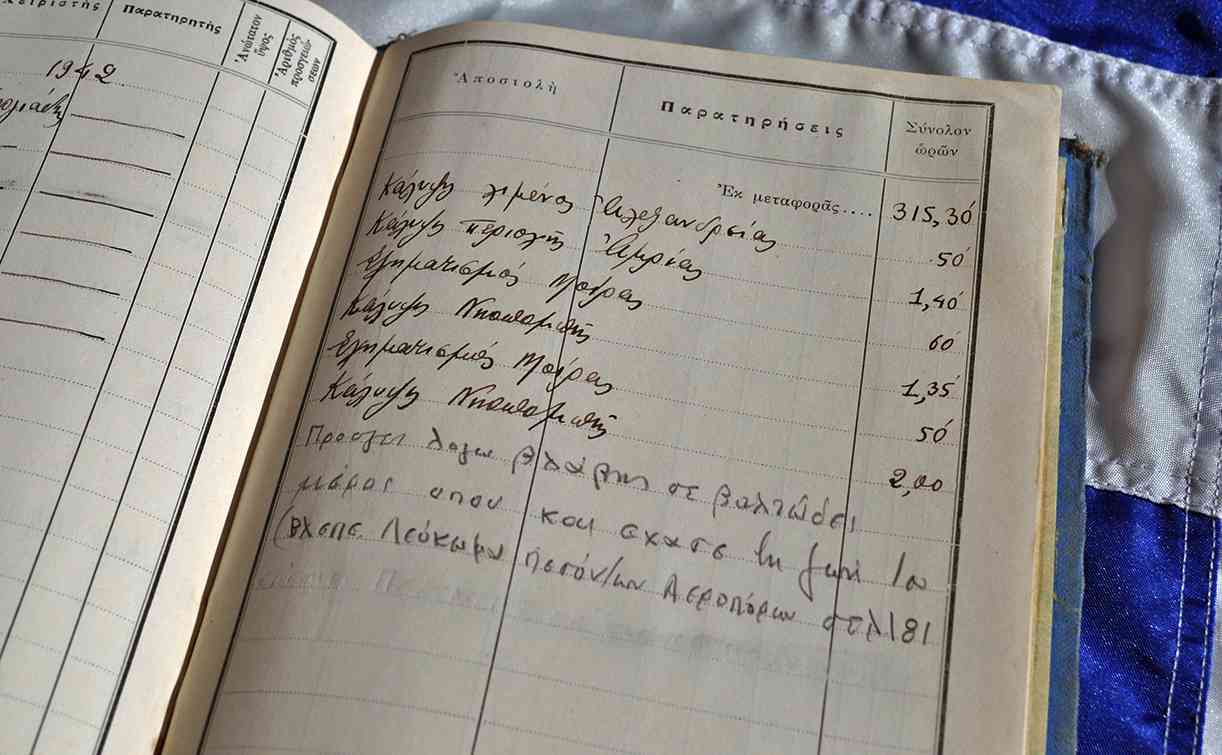 Χειριστής Παρατηρητής Ἀνώτατον ὕψος Ἀριθμὸς προσγειώσεων
1942
Ἀποστολὴ Παρατηρήσεις Σύνολον ὡρῶν
Ἐκ μεταφορᾶς.... 315,30
Κάλυψις λιμένος Ἀλεξανδρείας 50
Κάλυψις περιοχῆς Ἀμρίας 1,40
Σχηματισμός Μοίρας 60
Κάλυψις Νηοπομπῆς 1,35
Σχηματισμός Μοίρας 50
Κάλυψις Νηοπομπῆς 2,00
Προσγει λογω βλαβης σε βαλτώδει
μερος οπου και εχασε τη ζωη του
(βλεπε Λεύκωμα πεσόντων Αεροπόρων σελ 181